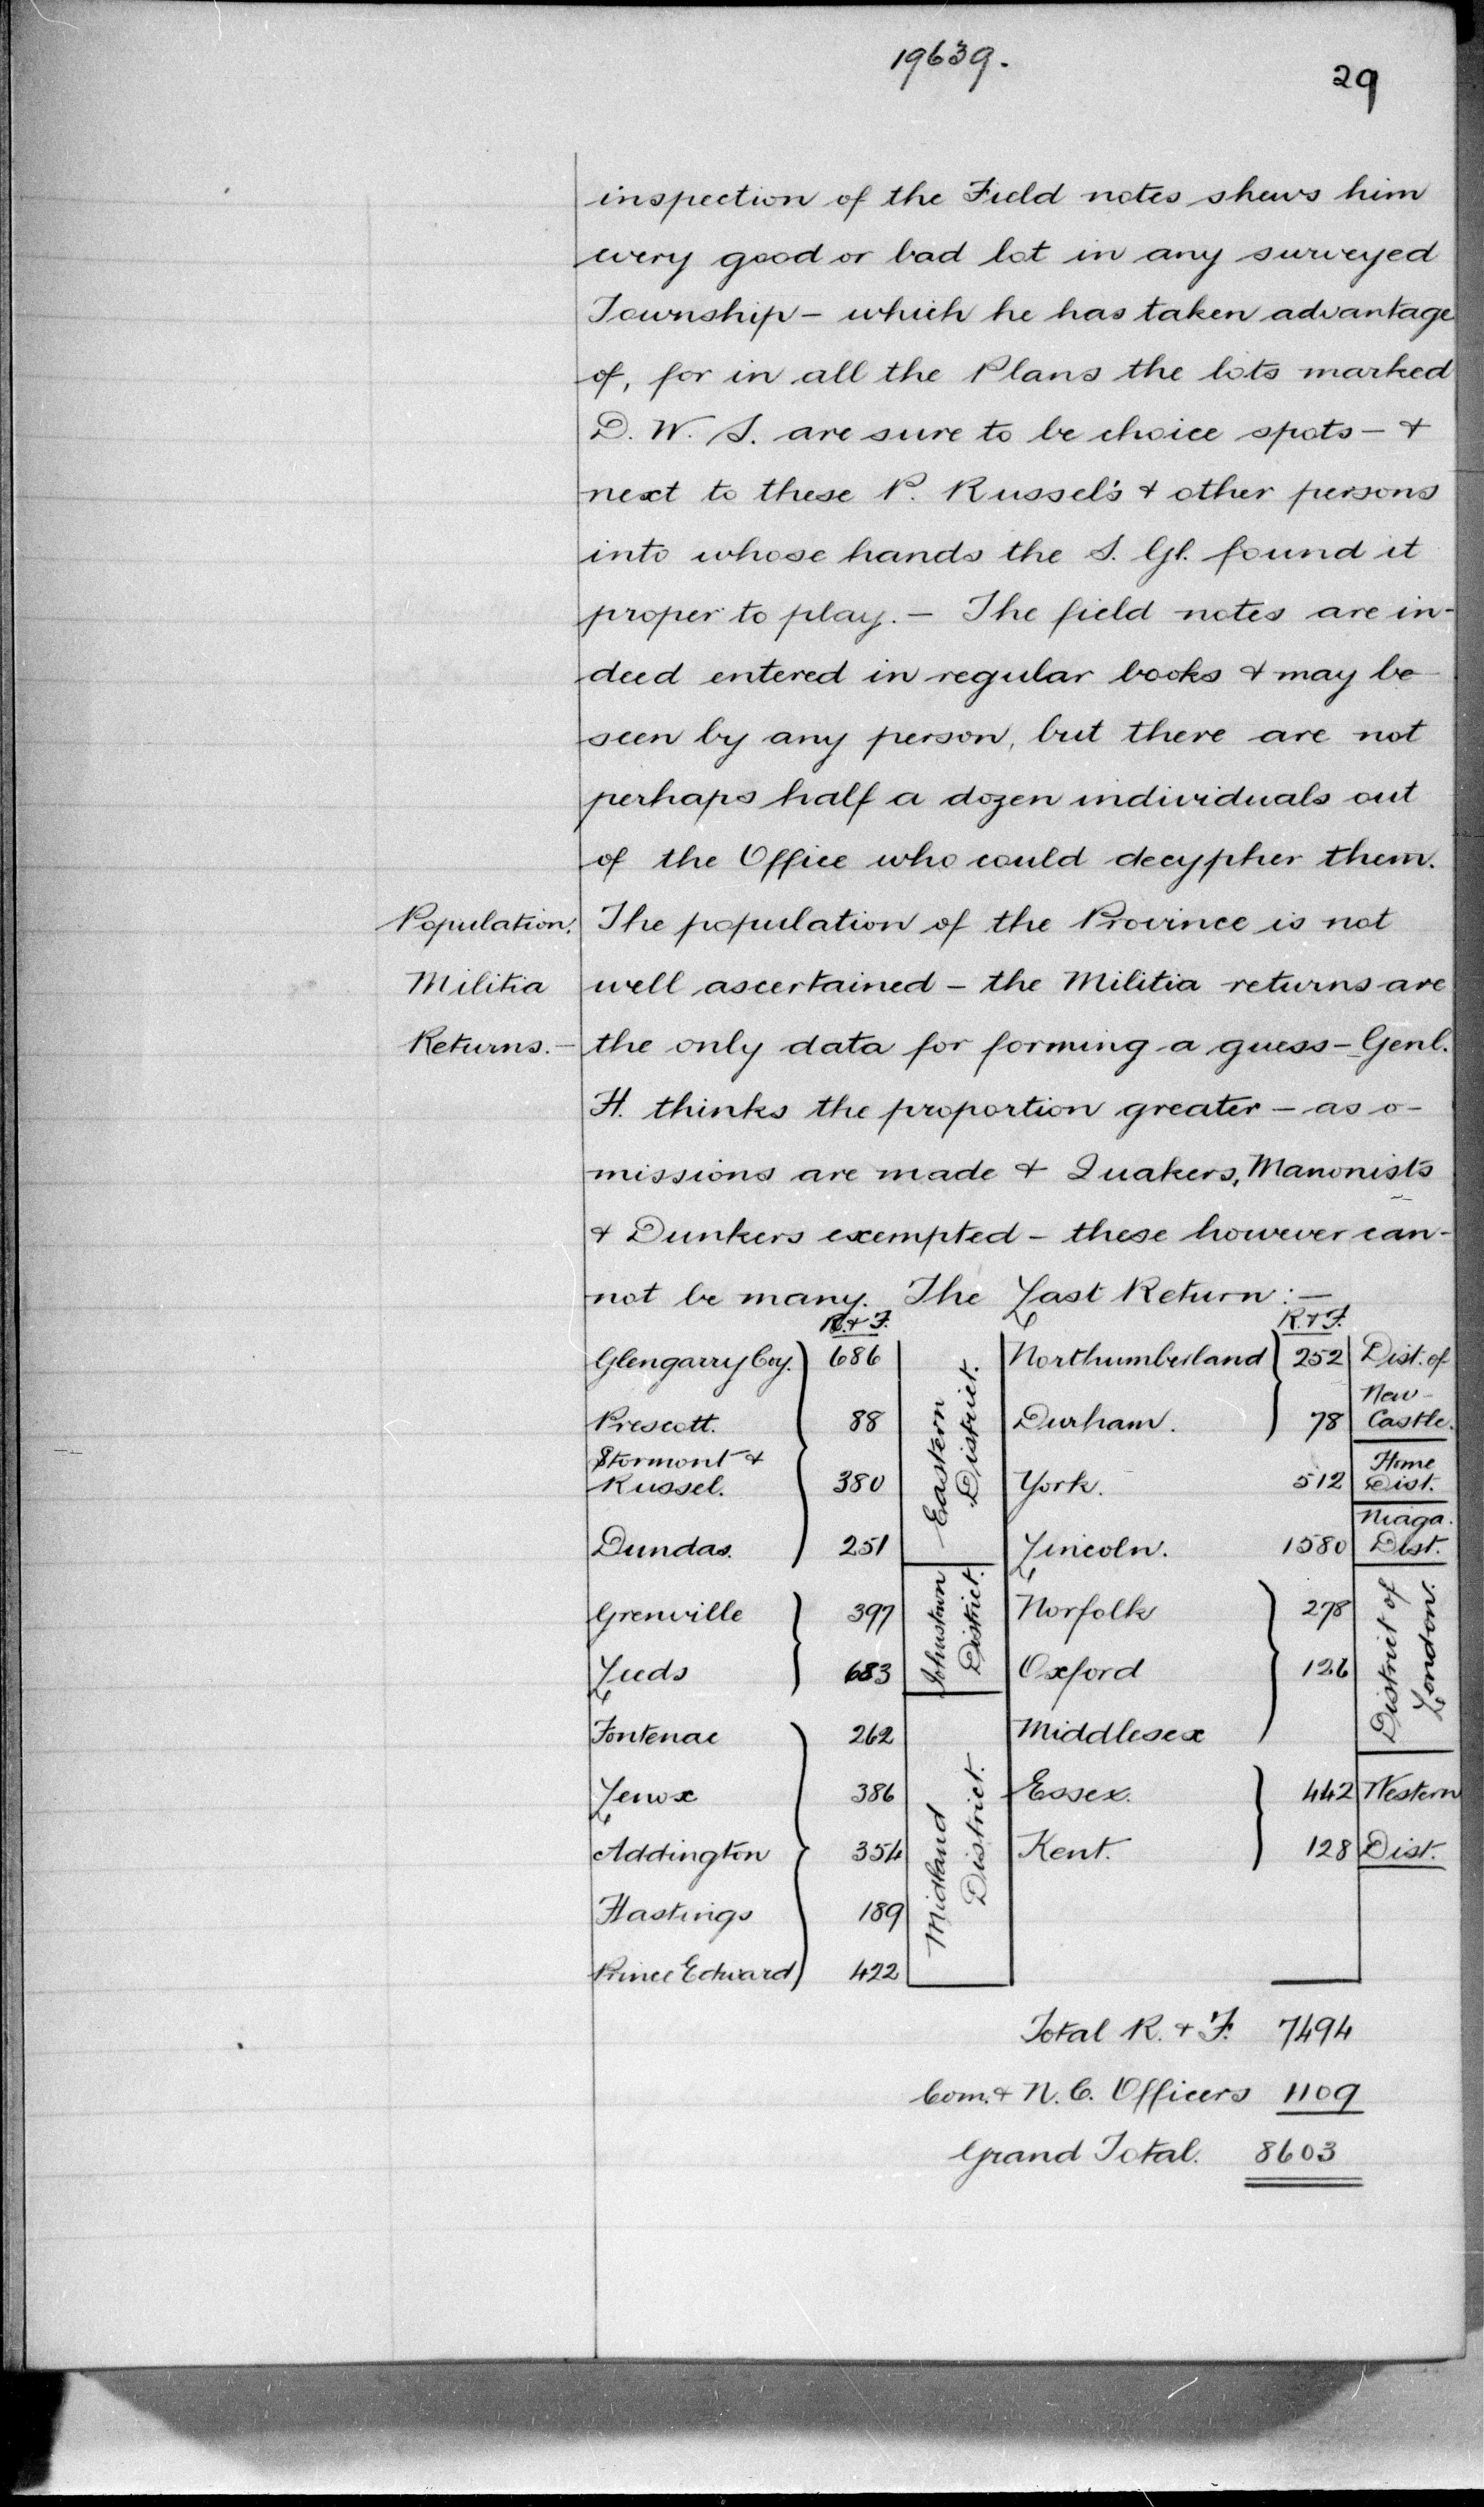 19639.
29
inspection of the Field notes shews him
every good or bad lot in any surveyed
Township - which he has taken advantage
of, for in all the Plans the lots marked
D. W. S. are sure to be choice spots - &
next to these P. Russel's & other persons
into whose hands the S. Gl. found it
proper to play. - The field notes are in-
deed entered in regular books & may be
seen by any person, but there are not
perhaps half a dozen individuals out
of the Office who could decypher them.
Population. The population of the Province is not
Militia well ascertained - the Militia returns are
Returns. - the only data for forming a guess - Genl.
H. thinks the proportion greater - as o-
missions are made & Quakers, Manonists
& Dunkers exempted - these however can-
not be many. The Last Return :-
R. & F. R. & F.
Glengarry Coy. 686 Northumberland 252 Dist. of
New-
Prescott. 88 Durham. 78 Castle.
Stormont &
Russel. 380 Eastern District. York. 512 Home Dist.
Dundas. 251 Lincoln. 1580 Niaga. Dist.
Grenville 397 Johnstown District. Norfolk 278 District of London.
Leeds 683 Oxford 126
Fontenac 262 Middlesex
Lenox 386 Midland District. Essex. 442 Western
Addington 354 Kent. 128 Dist.
Hastings 189
Prince Edward 422
Total R. & F. 7494
Com. & N. C. Officers 1109
Grand Total. 8603